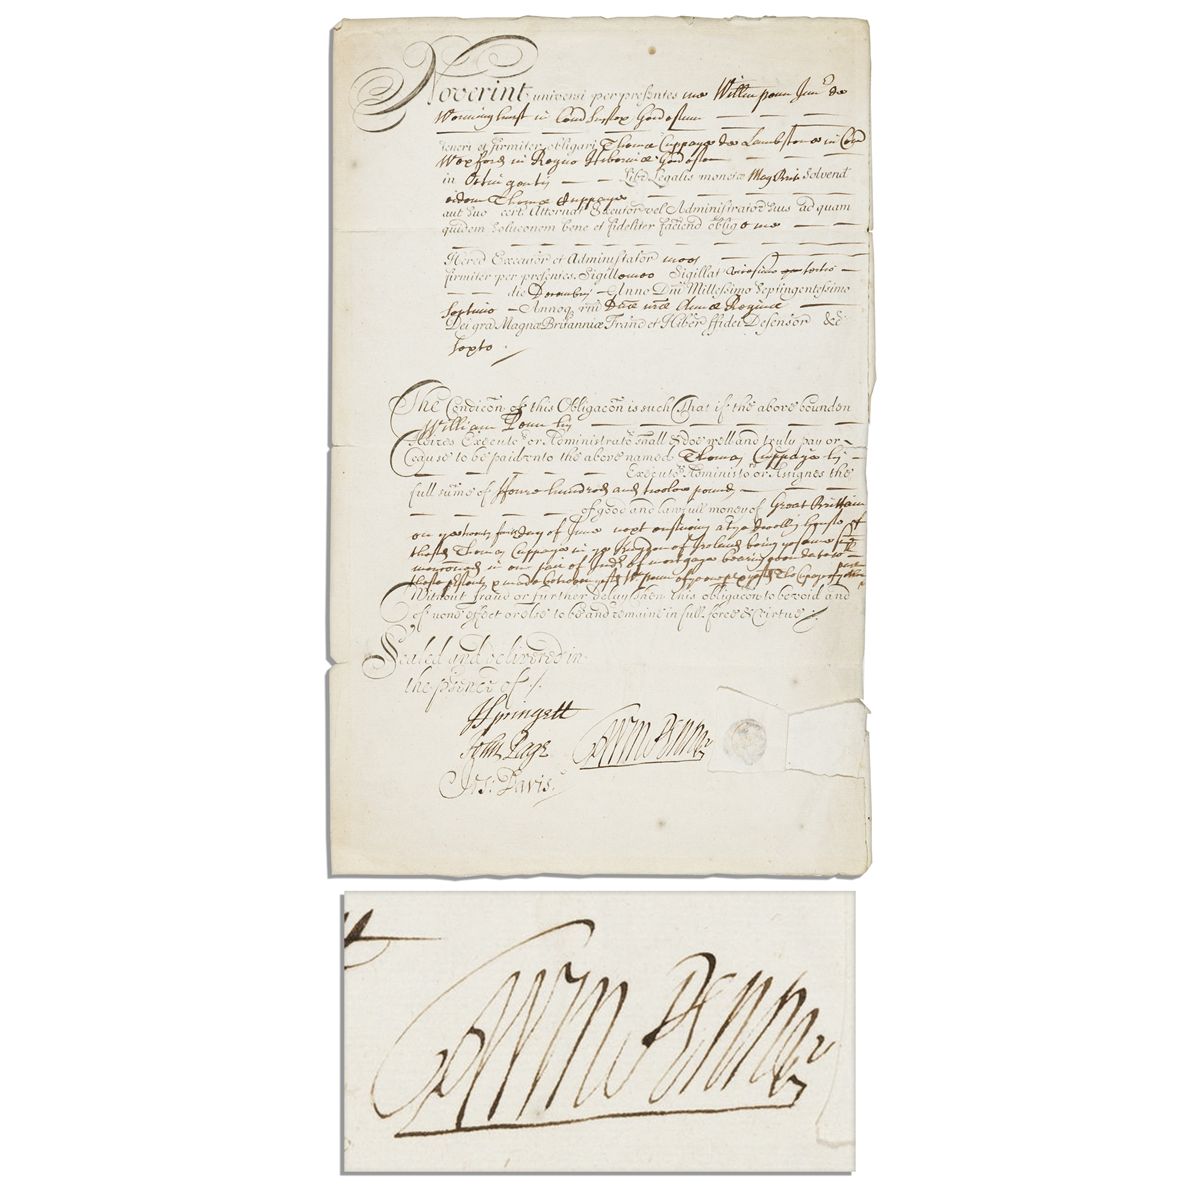 Noverint universi per presentes me Willm penn Junr de
Worminghurst in Com Sussex
teneri et firmiter obligari Thomæ Cuppage de Lambstone in Com
Wexford in Regno Hiberniæ
in Libr Legalis monetæ Mag Brit Solvend
eidem Thomæ Cuppage
aut suo cert. Attornat Executor vel Administrator suis ad quam
quidem Soluconem bene et fideliter faciend obligo me
Hered Executor et Administrator meos
firmiter per presentes. Sigillo meo Sigillat vicesimo tertio
die Decembris Anno Dni Millessimo Septingentissimo
Septimo Annoq rni Dnæ nræ Annæ Reginæ
Dei gra Magnæ Britanniæ Franc et Hiber ffidei Defensor &c
Sexto
The Condicon of this Obligacon is such That if the above bounden
William Penn his
Heires Executrs or Administratrs shall & doe well and truly pay or
cause to be paid unto the above named Thomas Cuppage his
Executrs Administrs or Assignes the
full sume of ffoure hundred and twelve pounds
of good and lawfull money of Great Brittain
on day of June next ensueing at ye dwelling house of
Thomas Cuppage in ye Kingdom of Ireland being ye same
menconed in one pair of Indrs of mortgage bearing even date wth
these psents
Without fraud or further delay then this obligacon to be void and
of none effect or else to be and remaine in full force & virtue
Sealed and delivered in
the psence of
H Springett
John Page
Jos: Davis
Wm Penn Jr
Wm Penn Jr